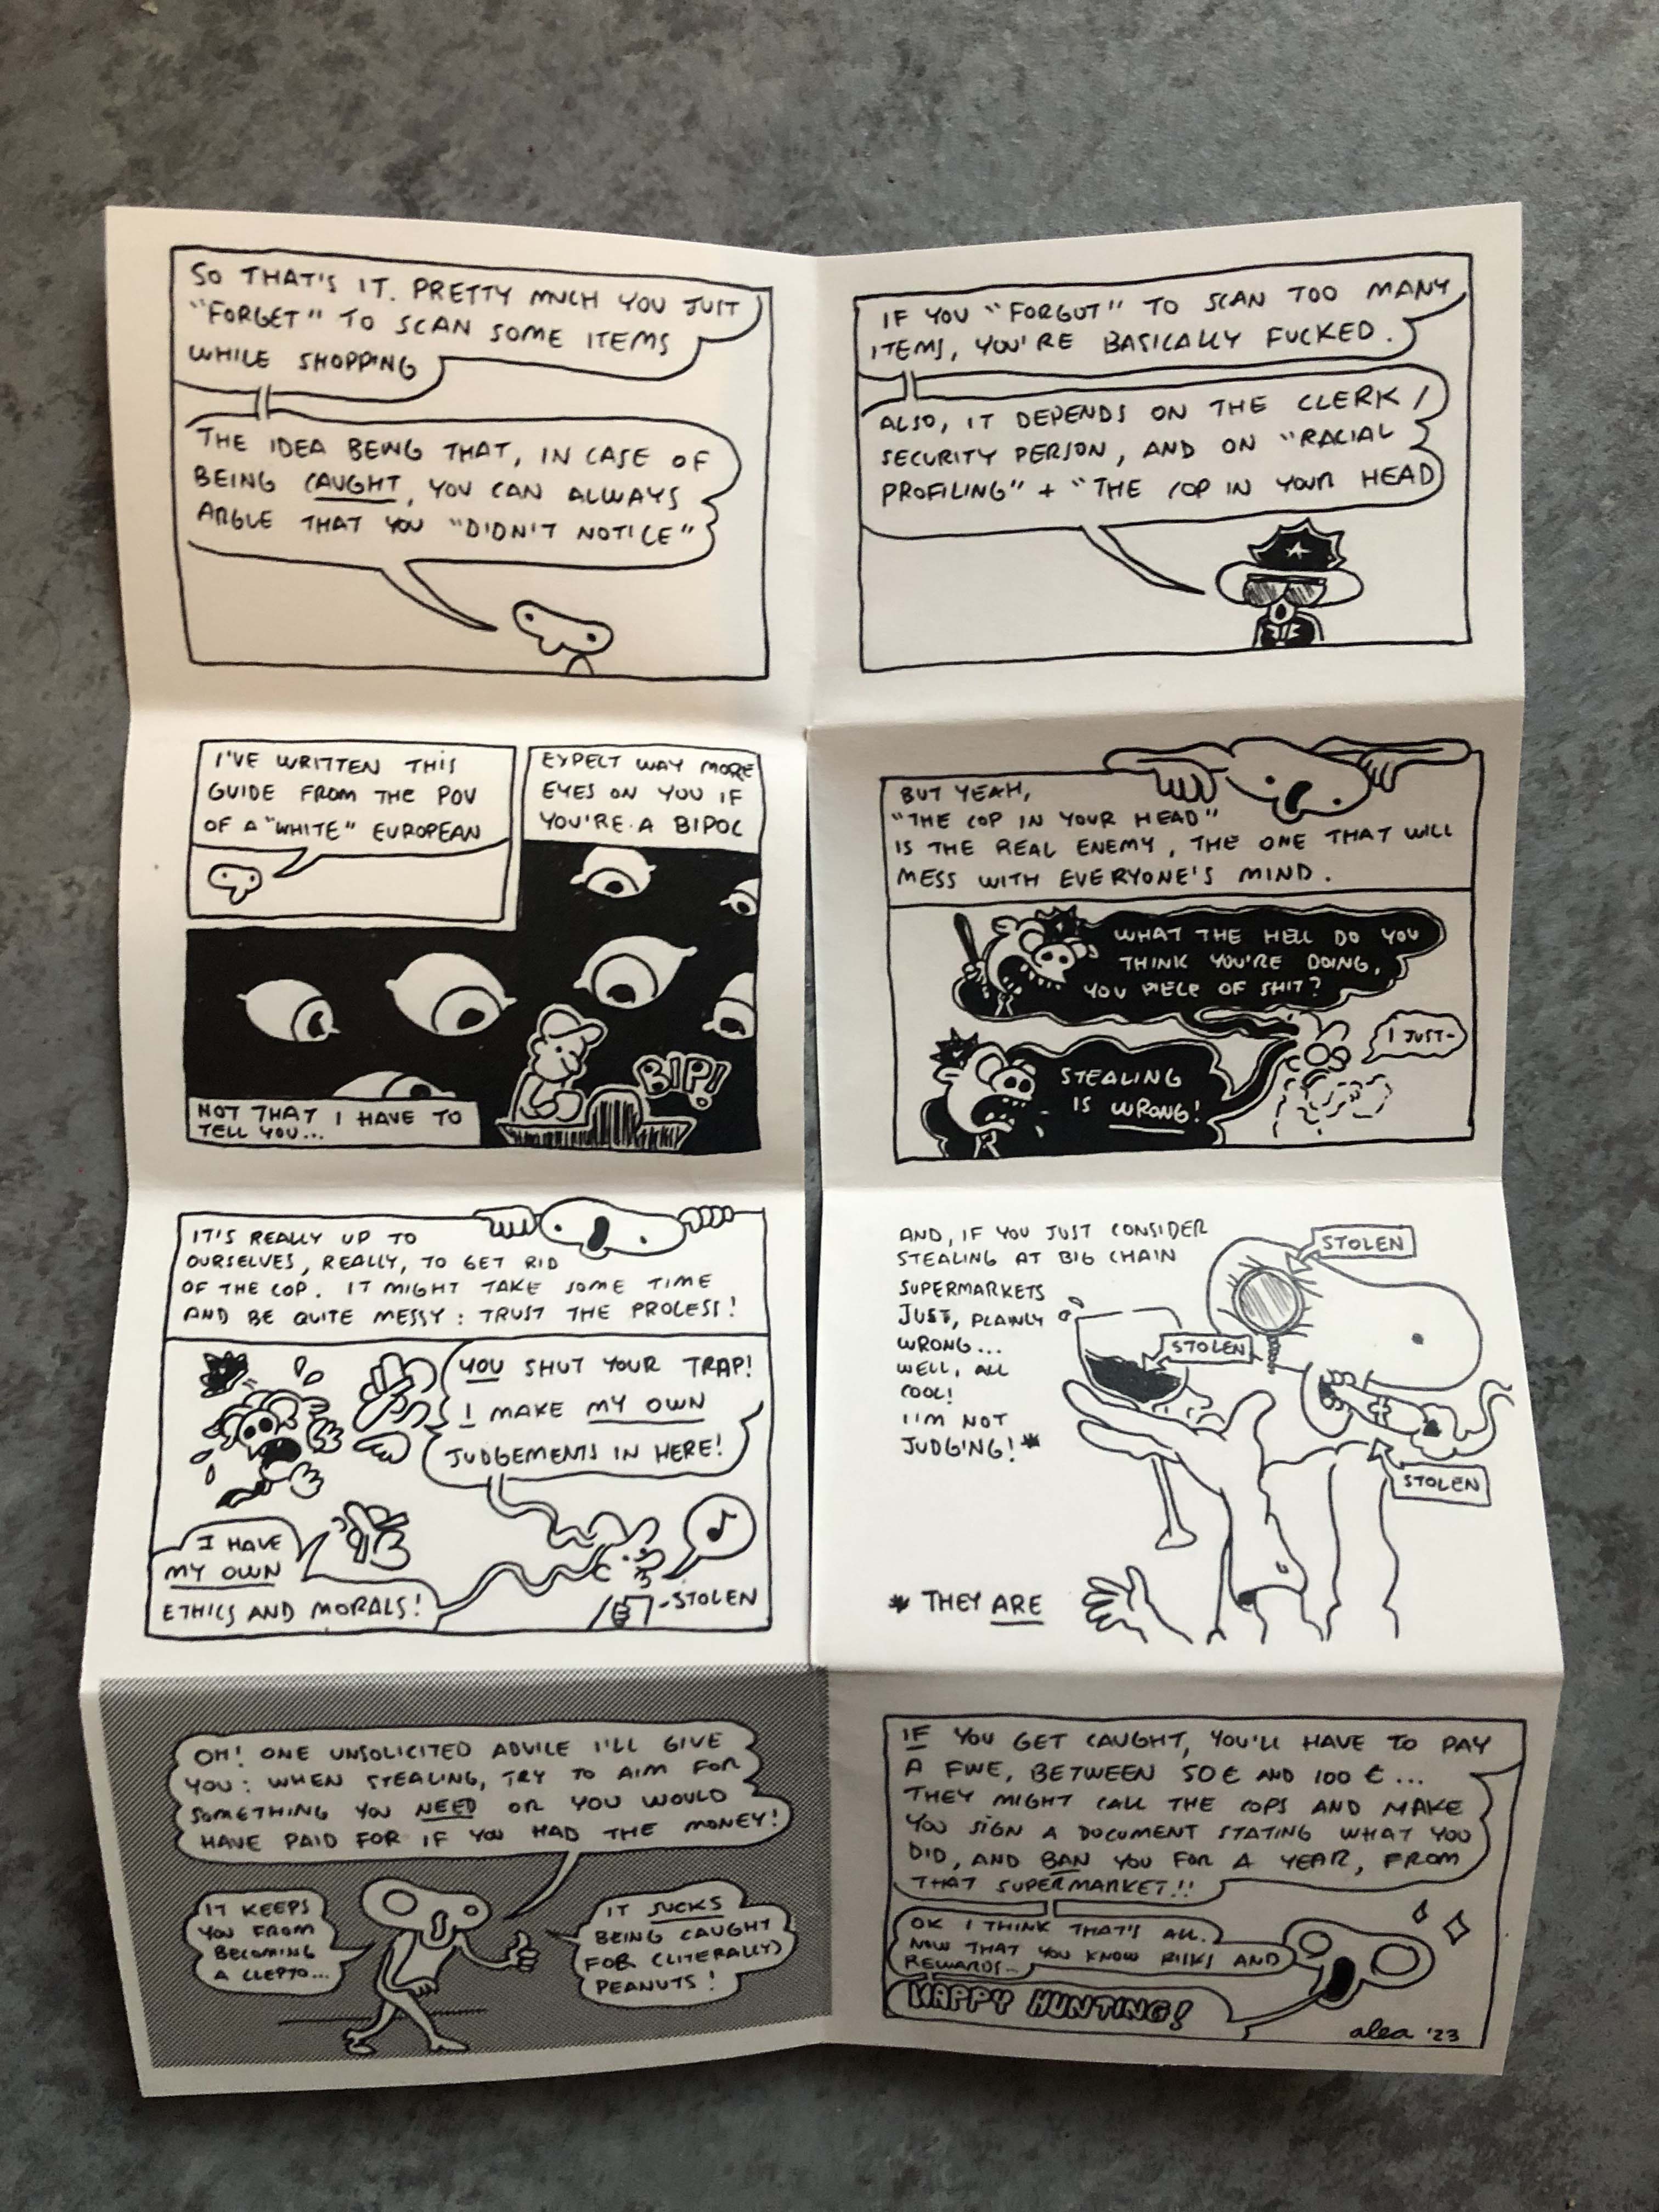 SO THAT'S IT. PRETTY MUCH YOU JUST
"FORGET" TO SCAN SOME ITEMS
WHILE SHOPPING
THE IDEA BEING THAT, IN CASE OF
BEING CAUGHT, YOU CAN ALWAYS
ARGUE THAT YOU "DIDN'T NOTICE"
IF YOU "FORGOT" TO SCAN TOO MANY
ITEMS, YOU'RE BASICALLY FUCKED.
ALSO, IT DEPENDS ON THE CLERK /
SECURITY PERSON, AND ON "RACIAL
PROFILING" + "THE COP IN YOUR HEAD
I'VE WRITTEN THIS
GUIDE FROM THE POV
OF A "WHITE" EUROPEAN
EXPECT WAY MORE
EYES ON YOU IF
YOU'RE A BIPOC
BIP!
NOT THAT I HAVE TO
TELL YOU...
BUT YEAH,
"THE COP IN YOUR HEAD"
IS THE REAL ENEMY, THE ONE THAT WILL
MESS WITH EVERYONE'S MIND.
WHAT THE HELL DO YOU
THINK YOU'RE DOING,
YOU PIECE OF SHIT?
I JUST-
STEALING
IS WRONG!
IT'S REALLY UP TO
OURSELVES, REALLY, TO GET RID
OF THE COP. IT MIGHT TAKE SOME TIME
AND BE QUITE MESSY: TRUST THE PROCESS!
YOU SHUT YOUR TRAP!
I MAKE MY OWN
JUDGEMENTS IN HERE!
I HAVE
MY OWN
ETHICS AND MORALS!
-STOLEN
AND, IF YOU JUST CONSIDER
STEALING AT BIG CHAIN
SUPERMARKETS
JUST, PLAINLY
WRONG...
WELL, ALL
COOL!
I'M NOT
JUDGING!*
STOLEN
STOLEN
STOLEN
* THEY ARE
OH! ONE UNSOLICITED ADVICE I'LL GIVE
YOU: WHEN STEALING, TRY TO AIM FOR
SOMETHING YOU NEED OR YOU WOULD
HAVE PAID FOR IF YOU HAD THE MONEY!
IT KEEPS
YOU FROM
BECOMING
A CLEPTO...
IT SUCKS
BEING CAUGHT
FOR (LITERALLY)
PEANUTS!
IF YOU GET CAUGHT, YOU'LL HAVE TO PAY
A FINE, BETWEEN 50€ AND 100€...
THEY MIGHT CALL THE COPS AND MAKE
YOU SIGN A DOCUMENT STATING WHAT YOU
DID, AND BAN YOU FOR A YEAR, FROM
THAT SUPERMARKET!!
OK I THINK THAT'S ALL.
NOW THAT YOU KNOW RISKS AND
REWARDS...
HAPPY HUNTING!
alea '23